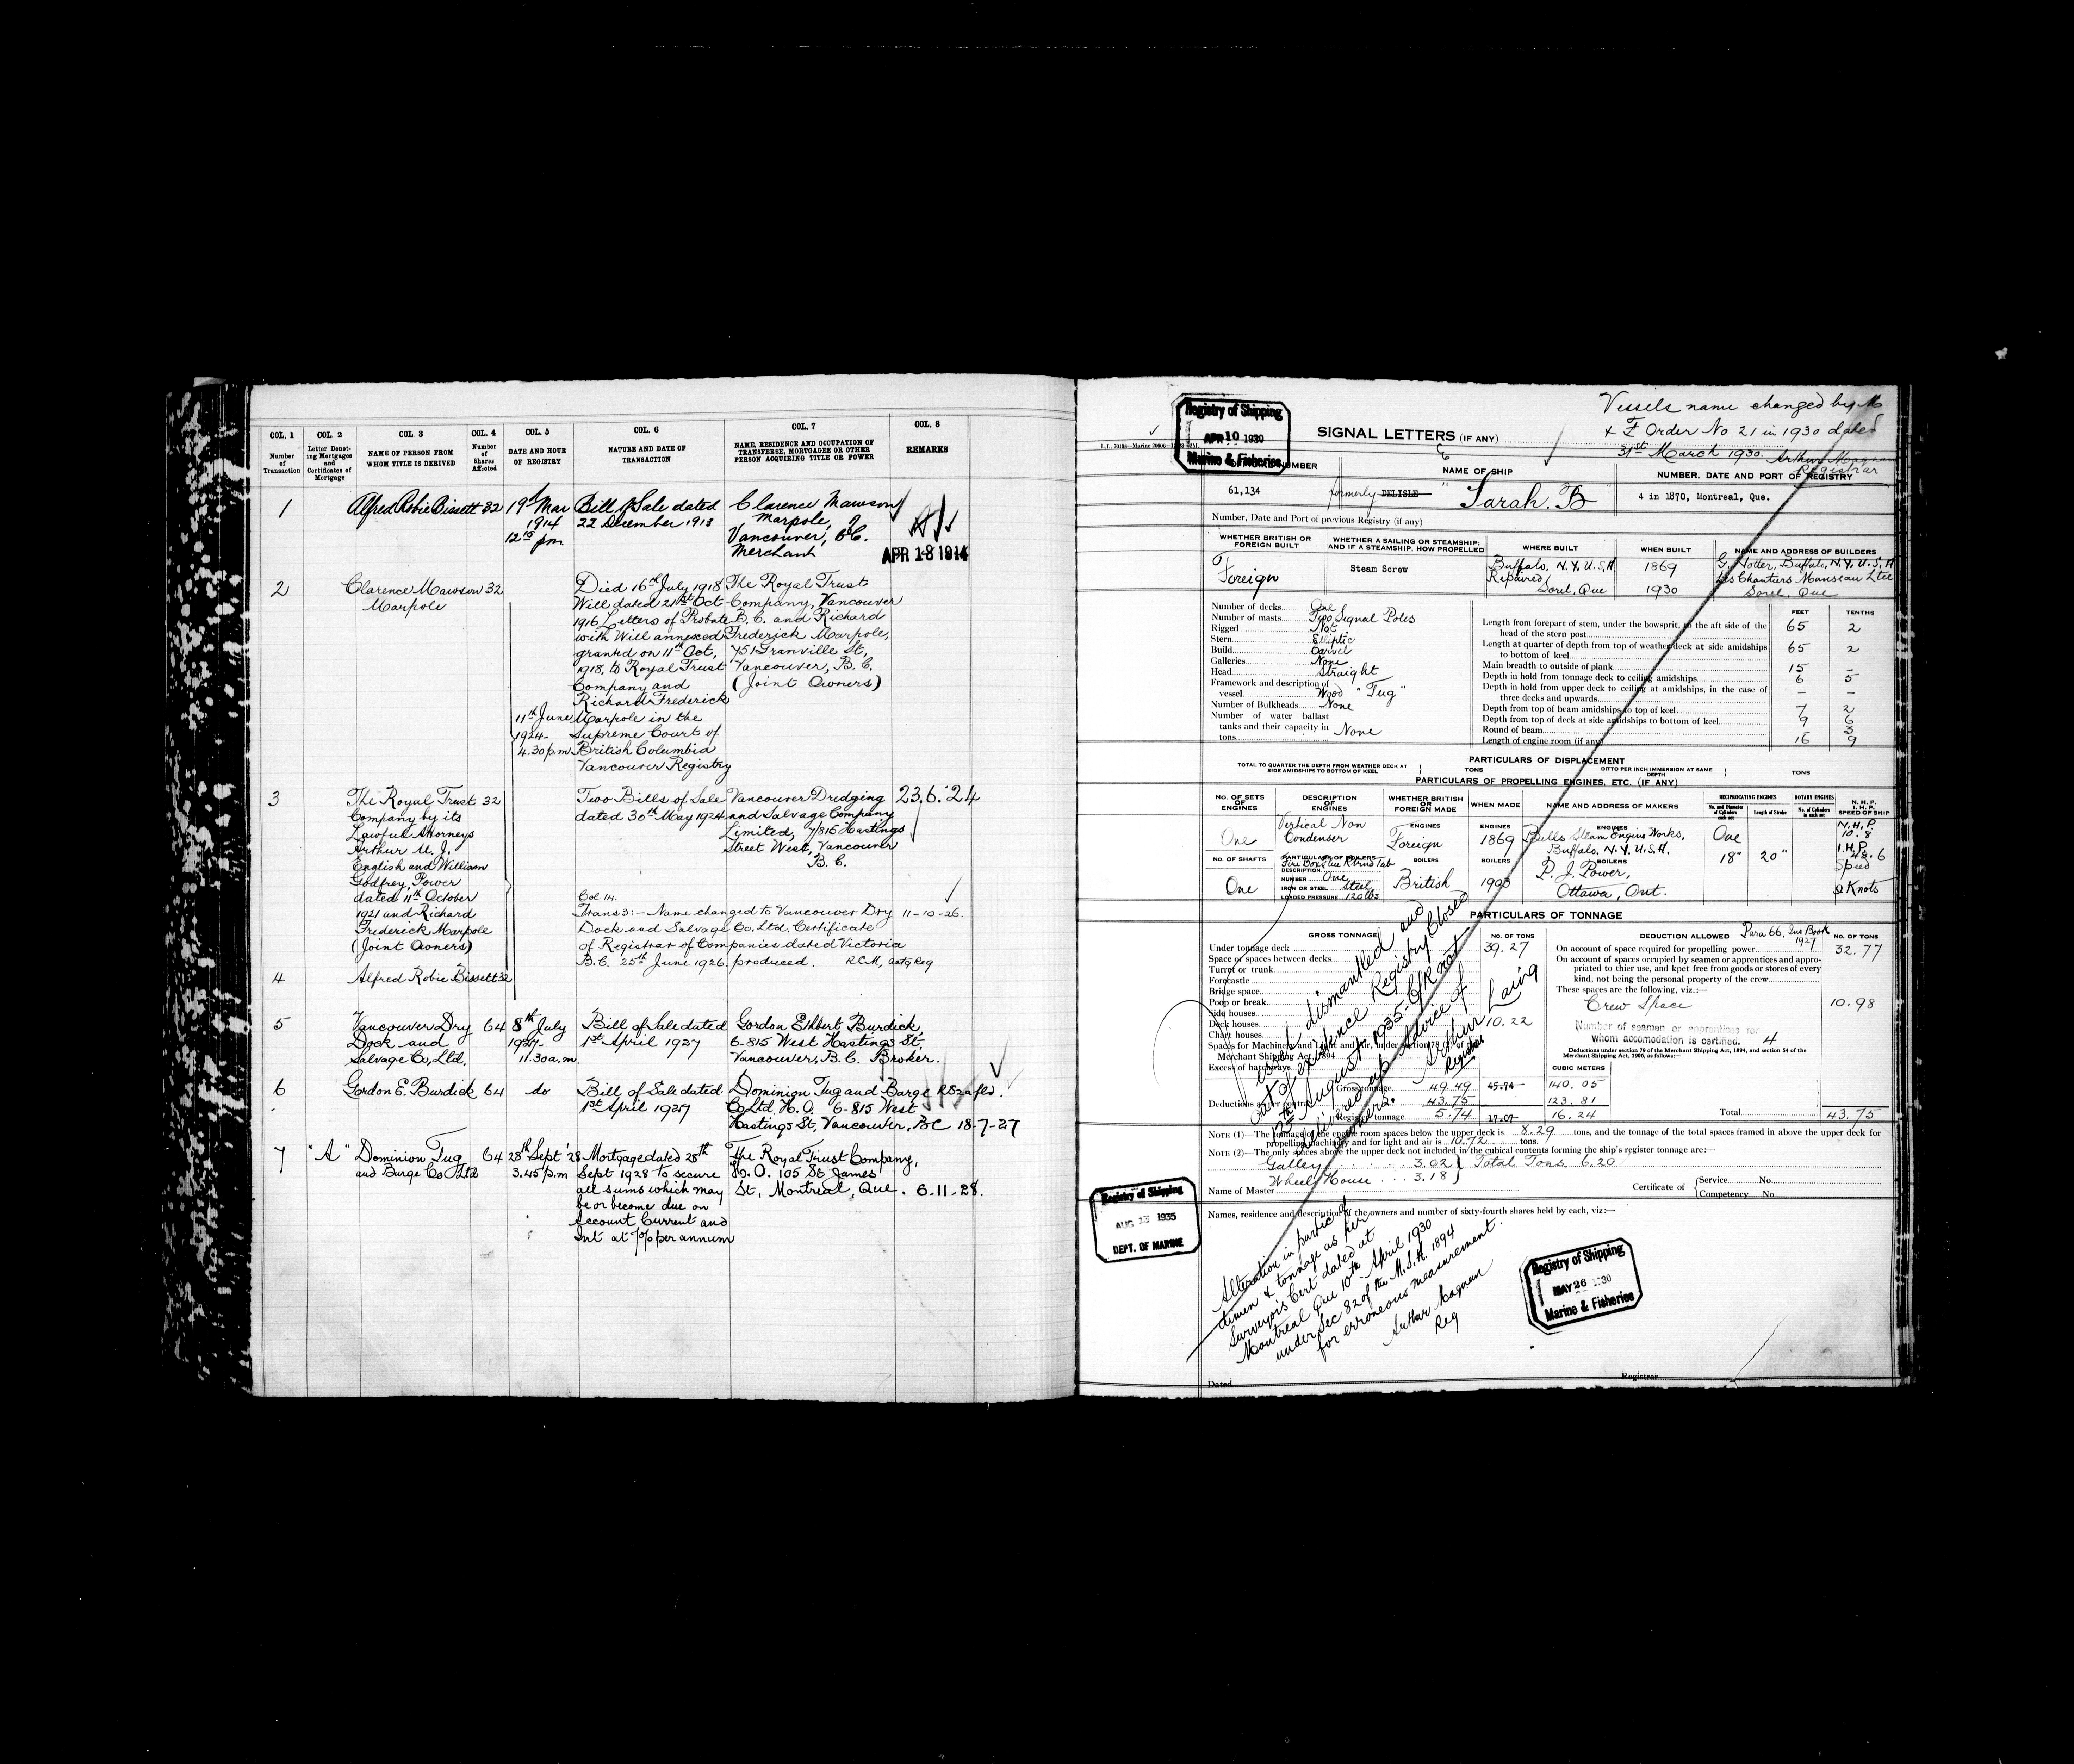 COL. 1
Number
of
Transaction
COL. 2
Letter Denot-
ing Mortgages
and
Certificates of
Mortgage
COL. 3
NAME OF PERSON FROM
WHOM TITLE IS DERIVED
COL. 4
Number
of
Shares
Affected
COL. 5
DATE AND HOUR
OF REGISTRY
COL. 6
NATURE AND DATE OF
TRANSACTION
COL. 7
NAME, RESIDENCE AND OCCUPATION OF
TRANSFERSE, MORTGAGEE OR OTHER
PERSON ACQUIRING TITLE OR POWER
COL. 8
REMARKS
1
Alfred Robie Bissett 32
19th Mar
1914
12 10 pm
Bill of Sale dated
22 December 1913
Clarence Mawson
Marpole,
Vancouver, B.C.
Merchant
APR 18 1914
2
Clarence Mawson 32
Marpole
11th June
1924
4.30 p.m
Died 16th July 1918
Will dated 21st Oct
1916 Letters of Probate
with Will annexed
granted on 11th Oct,
1918, to Royal Trust
Company and
Richard Frederick
Marpole in the
Supreme Court of
British Columbia
Vancouver Registry
The Royal Trust
Company, Vancouver
B. C. and Richard
Frederick Marpole,
751 Granville St,
Vancouver, B. C.
(Joint Owners)
3
The Royal Trust 32
Company by its
Lawful Attorneys
Arthur M. J.
English and William
Godfrey Power
dated 11th October
1921 and Richard
Frederick Marpole
(Joint Owners)
Two Bills of Sale
dated 30th May 1924
Vancouver Dredging
and Salvage Company
Limited, 7/815 Hastings
Street West, Vancouver
B. C.
23.6.24
Col 14.
Trans 3:— Name changed to Vancouver Dry 11-10-26.
Dock and Salvage Co, Ltd. Certificate
of Registrar of Companies dated Victoria
B.C. 25th June 1926 produced. R.C.M, actg Reg
4
Alfred Robie Bissett 32
5
Vancouver Dry 64
Dock and
Salvage Co, Ltd.
8th July
1927
11.30 a.m.
Bill of Sale dated
1st April 1927
Gordon Ethbert Burdick,
6-815 West Hastings St,
Vancouver, B. C. Broker.
6
Gordon E. Burdick 64
do
Bill of Sale dated
1st April 1927
Dominion Tug and Barge
Co Ltd, H. O. 6-815 West
Hastings St, Vancouver, BC 18-7-27
7
"A"
Dominion Tug 64
and Barge Co Ltd
28th Sept '28
3.45 p.m
Mortgage dated 28th
Sept 1928 to secure
all sums which may
be or become due on
Account Current and
Int at 7% per annum
The Royal Trust Company,
H. O. 105 St James
St, Montreal, Que. 6-11-28.
Registry of Shipping
APR 10 1930
Marine & Fisheries
Vessels name changed by M
& F Order No 21 in 1930 dated
31st March 1930. Arthur Magnan
Registrar
SIGNAL LETTERS (IF ANY)
NUMBER
61,134
NAME OF SHIP
formerly DELISLE "Sarah. B"
NUMBER, DATE AND PORT OF REGISTRY
4 in 1870, Montreal, Que.
Number, Date and Port of previous Registry (if any)
WHETHER BRITISH OR
FOREIGN BUILT
Foreign
WHETHER A SAILING OR STEAMSHIP;
AND IF A STEAMSHIP, HOW PROPELLED
Steam Screw
WHERE BUILT
Buffalo, N.Y. U.S.A.
Repaired
Sorel, Que
WHEN BUILT
1869
1930
NAME AND ADDRESS OF BUILDERS
G. Notter, Buffalo, N.Y. U.S.A
Les Chantiers Manseau Ltee
Sorel, Que
Number of decks One
Number of masts Two Signal Poles
Rigged Not
Stern Elliptic
Build Carvel
Galleries None
Head Straight
Framework and description of
vessel Wood "Tug"
Number of Bulkheads None
Number of water ballast
tanks and their capacity in
tons None
FEET TENTHS
Length from forepart of stem, under the bowsprit, to the aft side of the
head of the stern post 65 2
Length at quarter of depth from top of weather deck at side amidships
to bottom of keel 65 2
Main breadth to outside of plank 15 –
Depth in hold from tonnage deck to ceiling amidships 6 5
Depth in hold from upper deck to ceiling at amidships, in the case of
three decks and upwards – –
Depth from top of beam amidships to top of keel 7 2
Depth from top of deck at side amidships to bottom of keel 9 6
Round of beam 3
Length of engine room (if any) 16 9
PARTICULARS OF DISPLACEMENT
TOTAL TO QUARTER THE DEPTH FROM WEATHER DECK AT
SIDE AMIDSHIPS TO BOTTOM OF KEEL
TONS
DITTO PER INCH IMMERSION AT SAME
DEPTH
TONS
PARTICULARS OF PROPELLING ENGINES, ETC. (IF ANY)
NO. OF SETS
OF
ENGINES
One
NO. OF SHAFTS
One
DESCRIPTION
OF
ENGINES
Vertical Non
Condenser
PARTICULARS OF BOILERS
DESCRIPTION
NUMBER One
IRON OR STEEL Steel
LOADED PRESSURE 120 lbs
WHETHER BRITISH
OR
FOREIGN MADE
ENGINES
Foreign
BOILERS
British
WHEN MADE
ENGINES
1869
BOILERS
1903
NAME AND ADDRESS OF MAKERS
ENGINES
Bells Steam Engine Works,
Buffalo. N.Y. U.S.A.
BOILERS
P. J. Power,
Ottawa, Ont.
RECIPROCATING ENGINES
No. and Diameter
of Cylinders
each set
Length of Stroke
One
18" 20"
ROTARY ENGINES
No. of Cylinders
in each set
N.H.P.
I.H.P.
SPEED OF SHIP
N.H.P.
10.8
I.H.P.
43.6
Speed
9 Knots
PARTICULARS OF TONNAGE
GROSS TONNAGE
NO. OF TONS
Under tonnage deck 39.27
Space or spaces between decks
Turret or trunk
Forecastle
Bridge space
Poop or break
Side houses
Deck houses 10.22
Chart houses
Excess of hatchways
Gross tonnage 49.49 45.74 140.05
43.75 123.81
Register tonnage 5.74 27.07 16.24
CUBIC METERS
DEDUCTION ALLOWED Para 66, Ins Book
1927
NO. OF TONS
On account of space required for propelling power 32.77
On account of spaces occupied by seamen or apprentices and appro-
priated to thier use, and kpet free from goods or stores of every
kind, not being the personal property of the crew
These spaces are the following, viz.:—
Crew Space 10.98
Number of seamen or apprentices for
whom accomodation is certified. 4
Deductions under section 79 of the Merchant Shipping Act, 1894, and section 54 of the
Merchant Shipping Act, 1906, as follows:—
Total 43.75
NOTE (1)—The tonnage of the engine room spaces below the upper deck is 8.29 tons, and the tonnage of the total spaces framed in above the upper deck for
propelling machinery and for light and air is 10.72 tons.
NOTE (2)—The only spaces above the upper deck not included in the cubical contents forming the ship's register tonnage are:—
Galley 3.02 } Total Tons. 6.20
Wheel House 3.18
Name of Master
Certificate of
Service No.
Competency No.
Names, residence and description of the owners and number of sixty-fourth shares held by each, viz:—
Vessel dismantled and
out of existence Registry Closed
12th August, 1935 - C/R not
delivered up. Advice of
owners. Arthur Laing
Registrar
Alteration in partic of
dimen & tonnage as per
Surveyors Cert dated at
Montreal Que 10th April 1930
under Sec 82 of the M.S.A. 1894
for erroneous measurement.
Arthur Magnan
Reg
Registry of Shipping
AUG 13 1935
DEPT. OF MARINE
Registry of Shipping
MAY 26 1930
Marine & Fisheries
Dated
Registrar